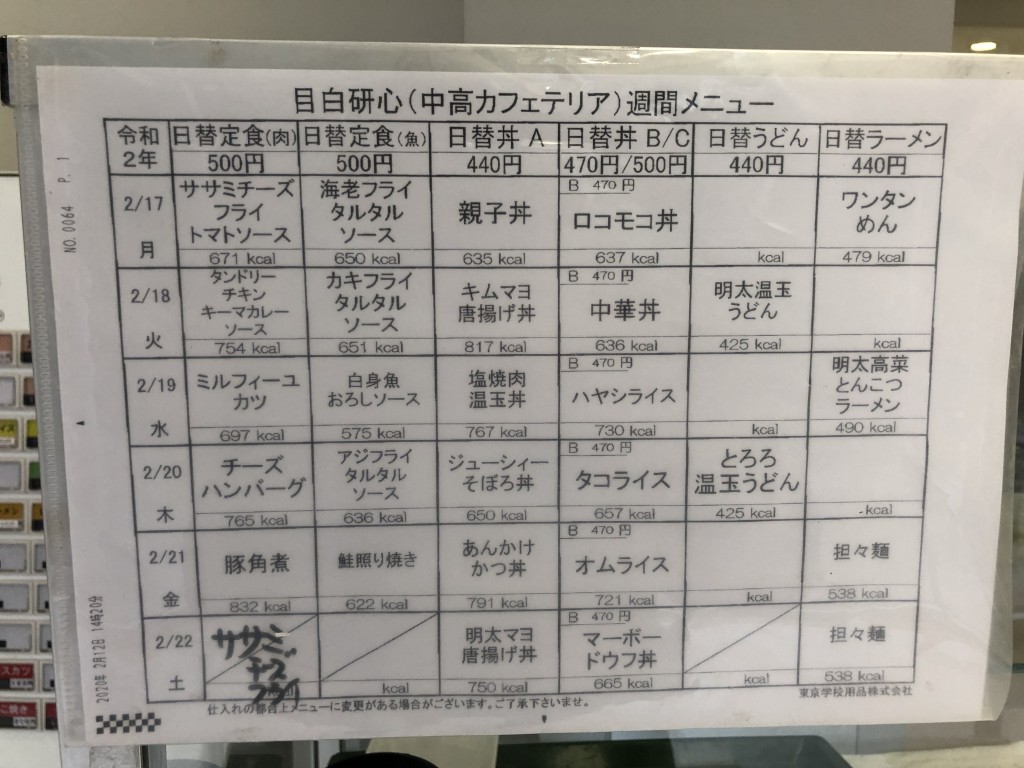 目白研心(中高カフェテリア)週間メニュー
令和
2年
日替定食(肉)
500円
日替定食(魚)
500円
日替丼 A
440円
日替丼 B/C
470円/500円
日替うどん
440円
日替ラーメン
440円
2/17
月
ササミチーズ
フライ
トマトソース
671 kcal
海老フライ
タルタル
ソース
650 kcal
親子丼
635 kcal
B 470 円
ロコモコ丼
637 kcal
kcal
ワンタン
めん
479 kcal
2/18
火
タンドリー
チキン
キーマカレー
ソース
754 kcal
カキフライ
タルタル
ソース
651 kcal
キムマヨ
唐揚げ丼
817 kcal
B 470 円
中華丼
636 kcal
明太温玉
うどん
425 kcal
kcal
2/19
水
ミルフィーユ
カツ
697 kcal
白身魚
おろしソース
575 kcal
塩焼肉
温玉丼
767 kcal
B 470 円
ハヤシライス
730 kcal
kcal
明太高菜
とんこつ
ラーメン
490 kcal
2/20
木
チーズ
ハンバーグ
765 kcal
アジフライ
タルタル
ソース
636 kcal
ジューシィー
そぼろ丼
650 kcal
B 470 円
タコライス
657 kcal
とろろ
温玉うどん
425 kcal
kcal
2/21
金
豚角煮
832 kcal
鮭照り焼き
622 kcal
あんかけ
かつ丼
791 kcal
B 470 円
オムライス
721 kcal
kcal
担々麺
538 kcal
2/22
土
ササミ
チーズ
フライ
kcal
明太マヨ
唐揚げ丼
750 kcal
B 470 円
マーボー
ドウフ丼
665 kcal
kcal
担々麺
538 kcal
仕入れの都合上メニューに変更がある場合がございます。ご了承下さいませ。
東京学校用品株式会社
NO. 0064 P. 1
2020年 2月12日 14時20分